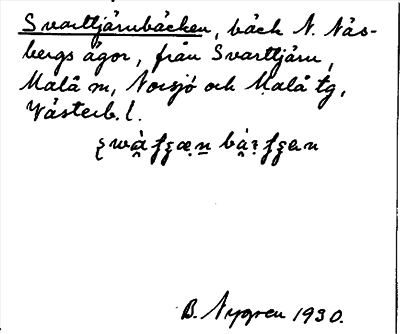 Svarttjärnbäcken, bäck N. Näs-
bergs ägor, från Svarttjärn,
Malå m, Norsjö och Malå tg,
Västerb. l.
B. Nygren 1930.